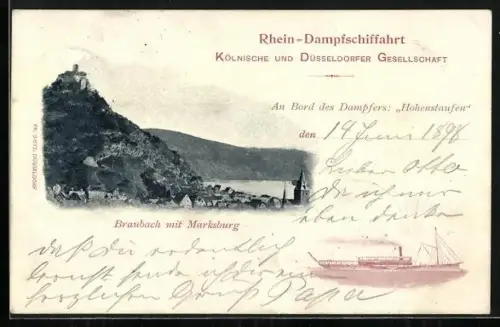 Rhein-Dampfschiffahrt
KÖLNISCHE UND DÜSSELDORFER GESELLSCHAFT
An Bord des Dampfers: „Hohenstaufen"
den 14 Juni 1898
Lieber Otto
da ich nur
eben danke
Braubach mit Marksburg
daß du ordentlich
herzlichen Gruß Papa